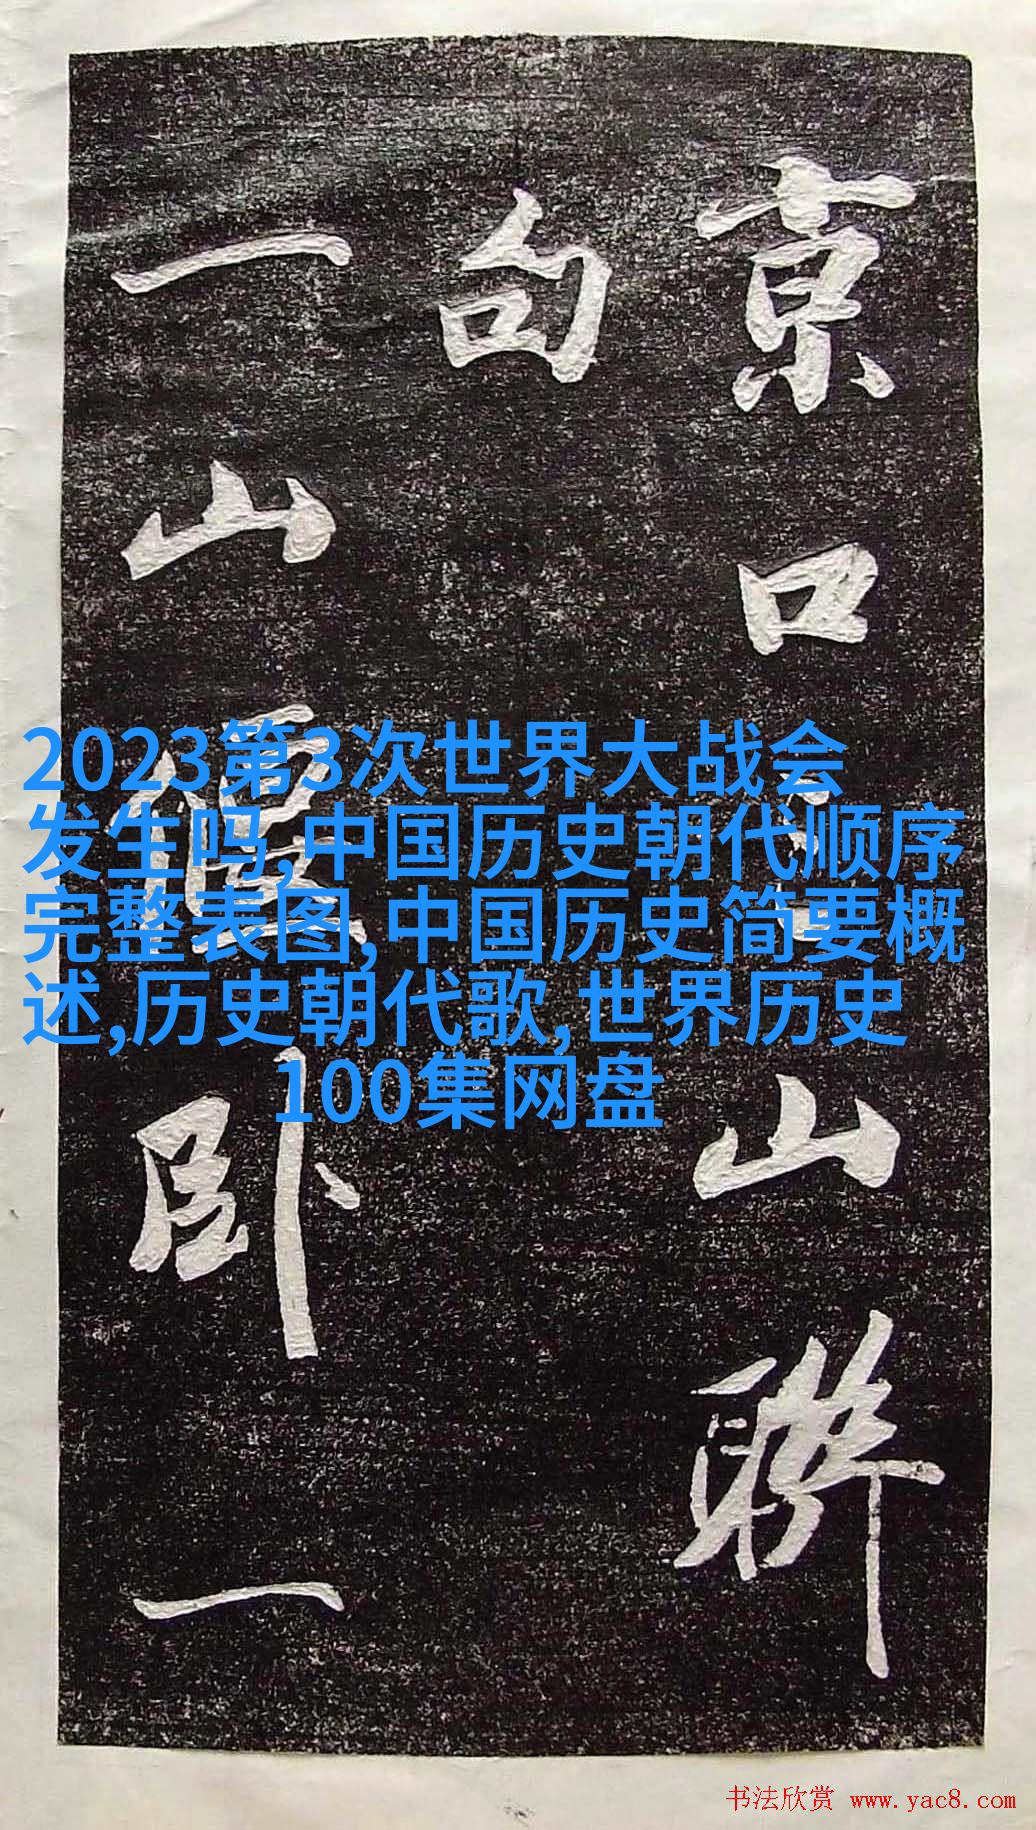 京口山聯
句
一山偃卧一
2023第3次世界大战会
发生吗,中国历史朝代顺序
完整表图,中国历史简要概
述,历史朝代歌,世界历史
100集网盘
书法欣赏 www.yac8.com